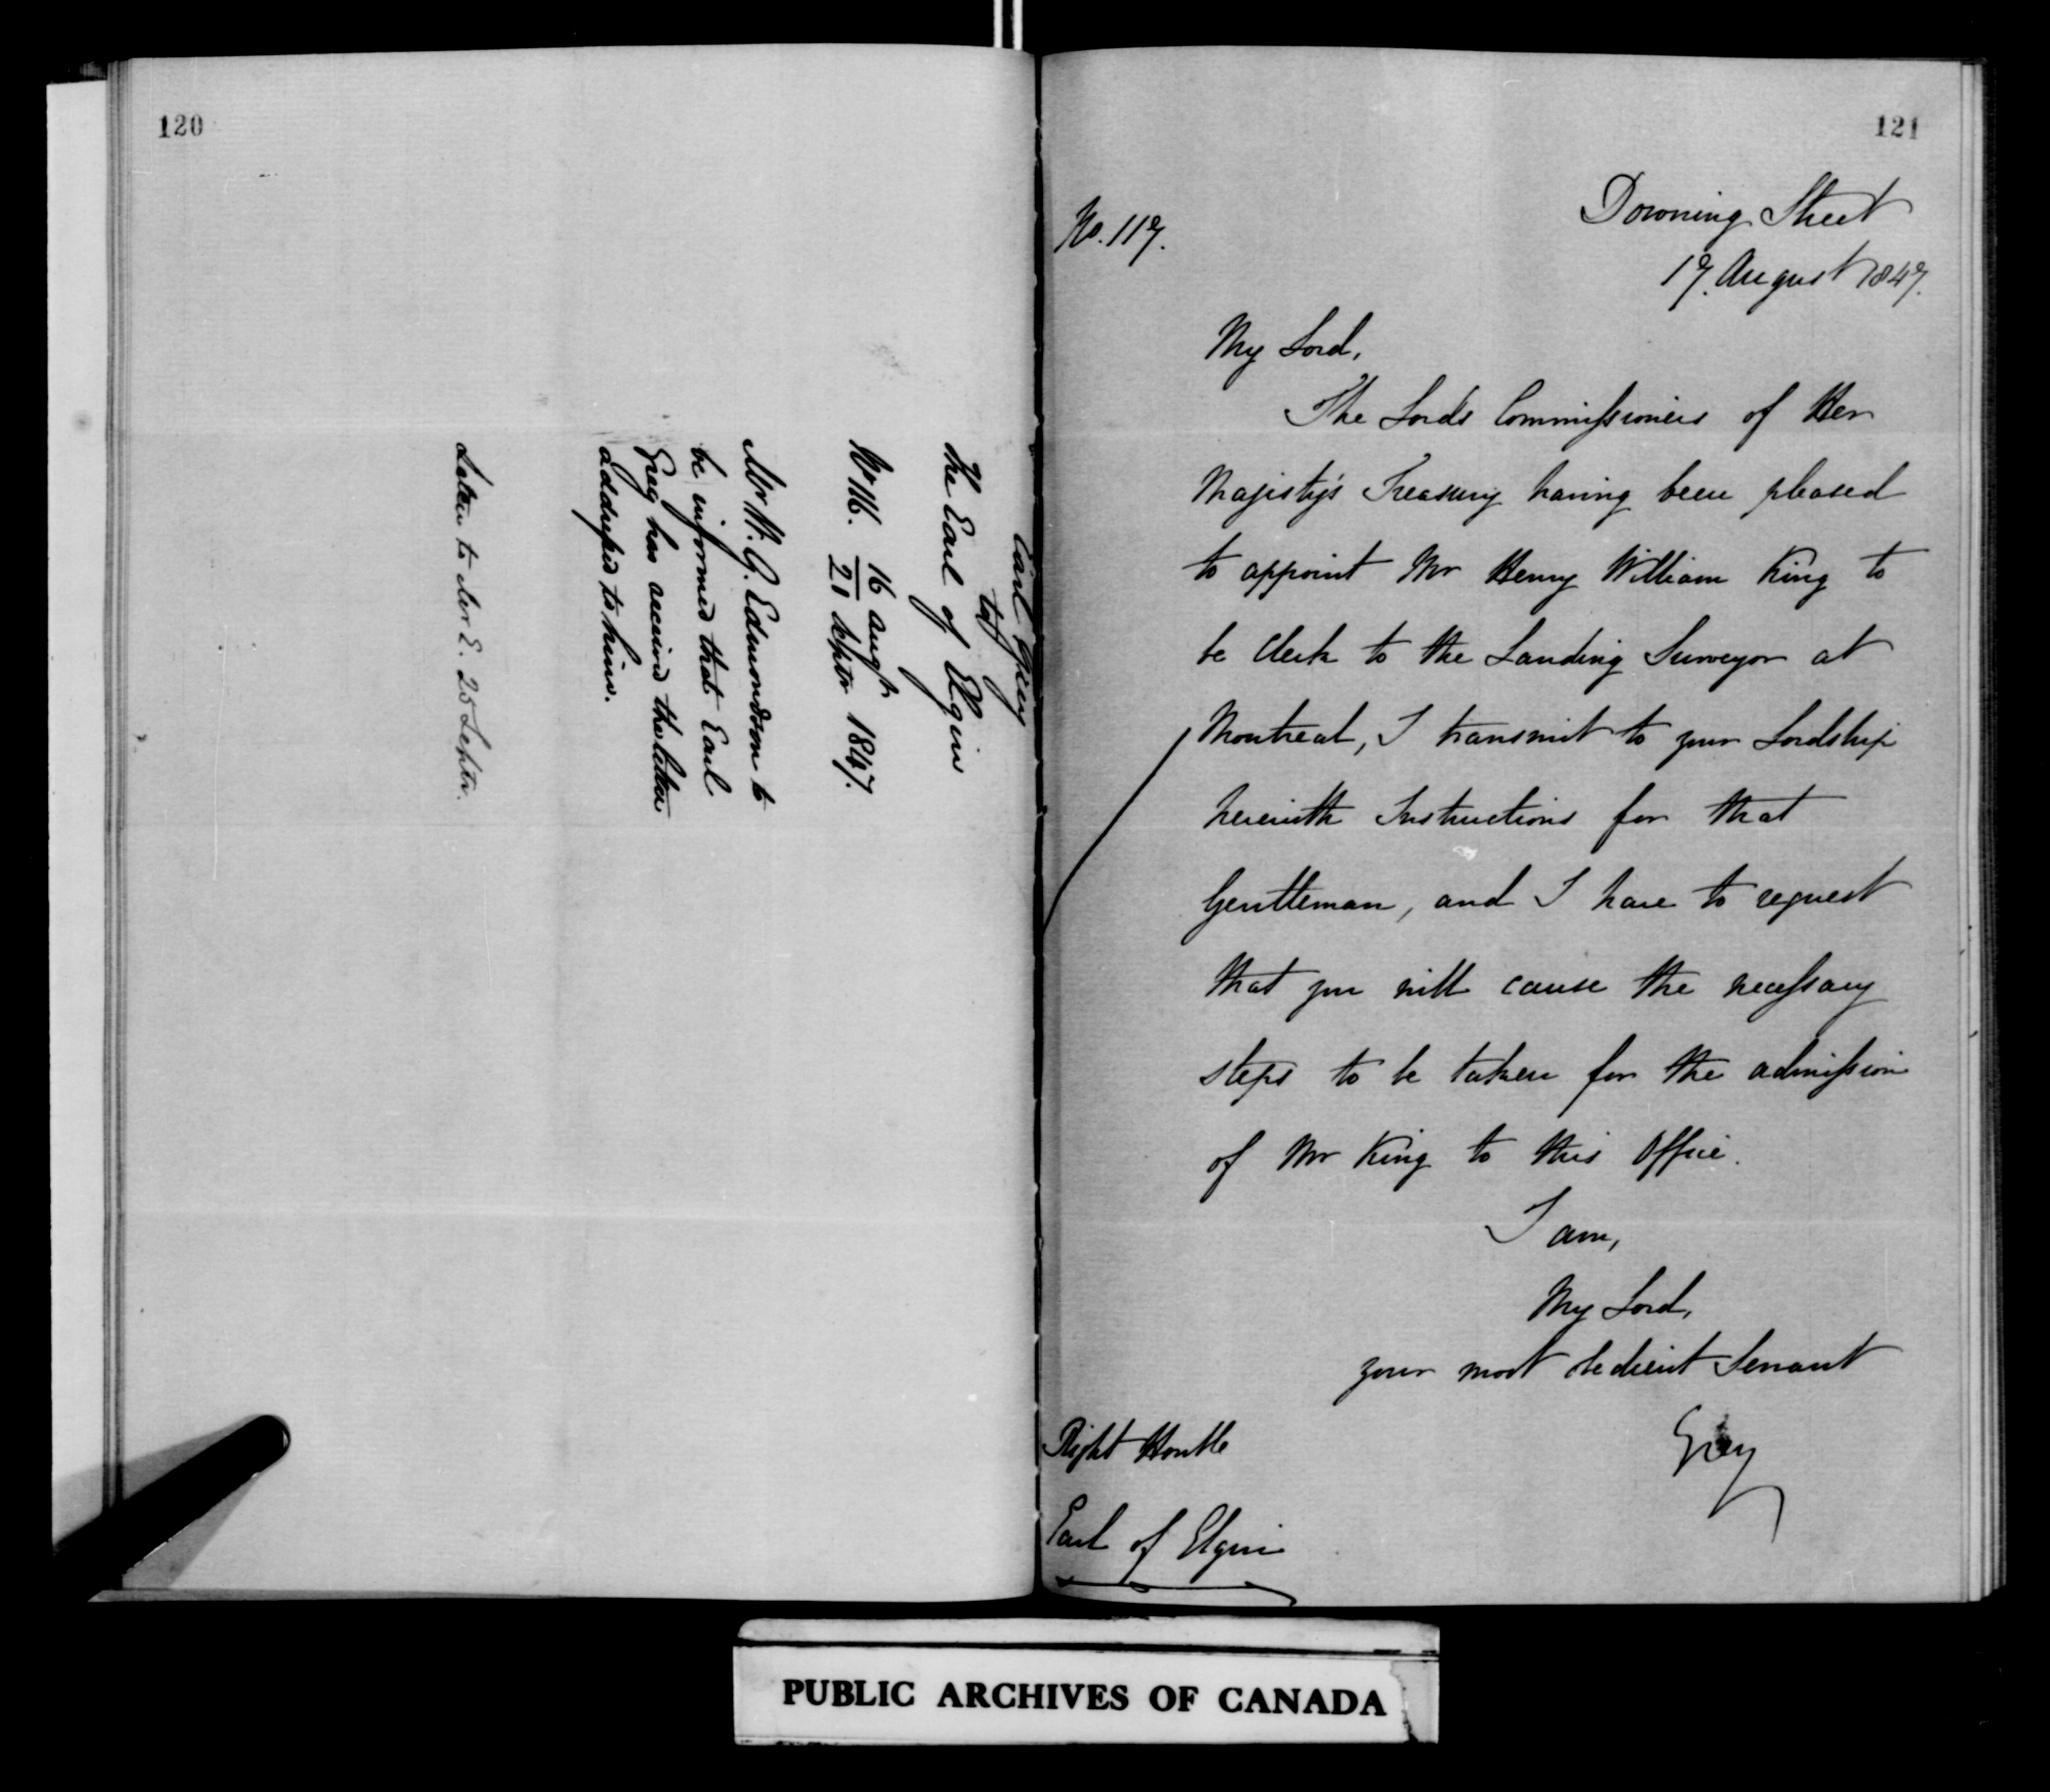 120
Earl Grey
to
The Earl of Elgin
No 116. 16 Augt
21 Septr 1847.
Mr W. G. Edmondson to
be informed that Earl
Grey has received the letter
addressed to him.
Letter to Mr E. 25 Septr.
121
No. 117.
Downing Street
17. August 1847.
My Lord,
The Lords Commissioners of Her
Majesty's Treasury having been pleased
to appoint Mr Henry William King to
be Clerk to the Landing Surveyor at
Montreal, I transmit to your Lordship
herewith Instructions for that
Gentleman, and I have to request
that you will cause the necessary
steps to be taken for the admission
of Mr King to this Office.
I am,
My Lord,
your most obedient Servant
Grey
Right Honble
Earl of Elgin
PUBLIC ARCHIVES OF CANADA